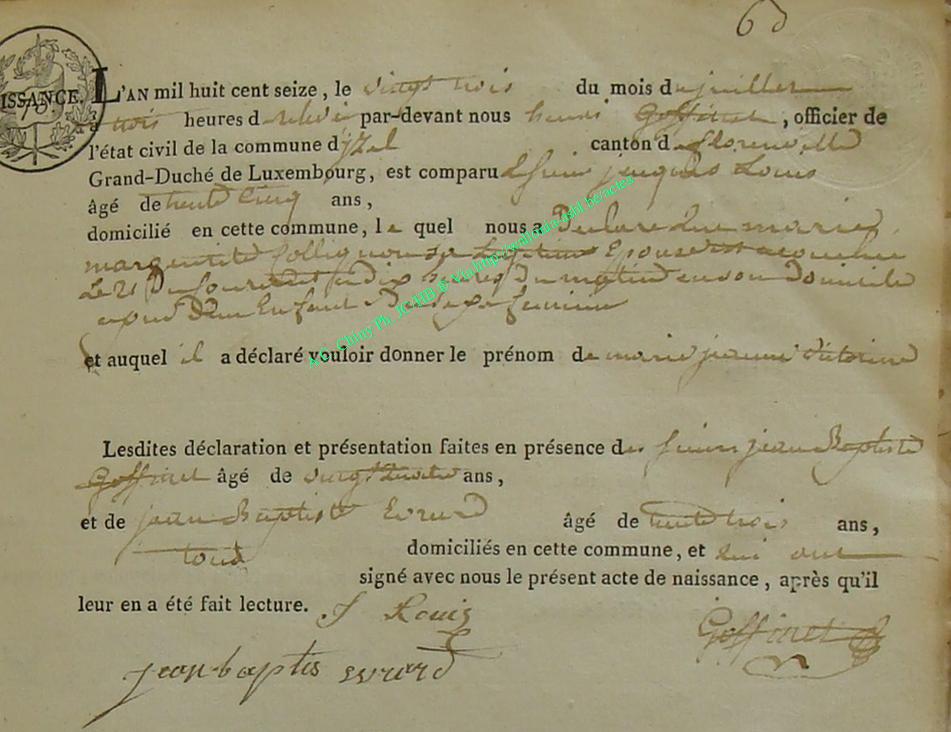 60
NAISSANCE. L'AN mil huit cent seize, le vingt trois du mois de juillet
à trois heures de relevée par-devant nous henri Goffinet, officier de
l'état civil de la commune d'izel canton de florenville
Grand-Duché de Luxembourg, est comparu Le sieur jacques Louis
âgé de trente Cinq ans,
domicilié en cette commune, le quel nous a Declaré que marie
margueritte Collignon sa Legitime Epouse est acouchée
Le 21 Du Courant a dix heures Du matin en son Domicile
D'un Enfant De sexe feminin
et auquel il a déclaré vouloir donner le prénom de marie jeanne victorine
Lesdites déclaration et présentation faites en présence des sieurs jean Baptiste
Goffinet âgé de ans,
et de jean Baptiste Evrard âgé de trente trois ans,
tous domiciliés en cette commune, et qui ont
signé avec nous le présent acte de naissance, après qu'il
leur en a été fait lecture. J Louis
Goffinet
jean baptis evrard